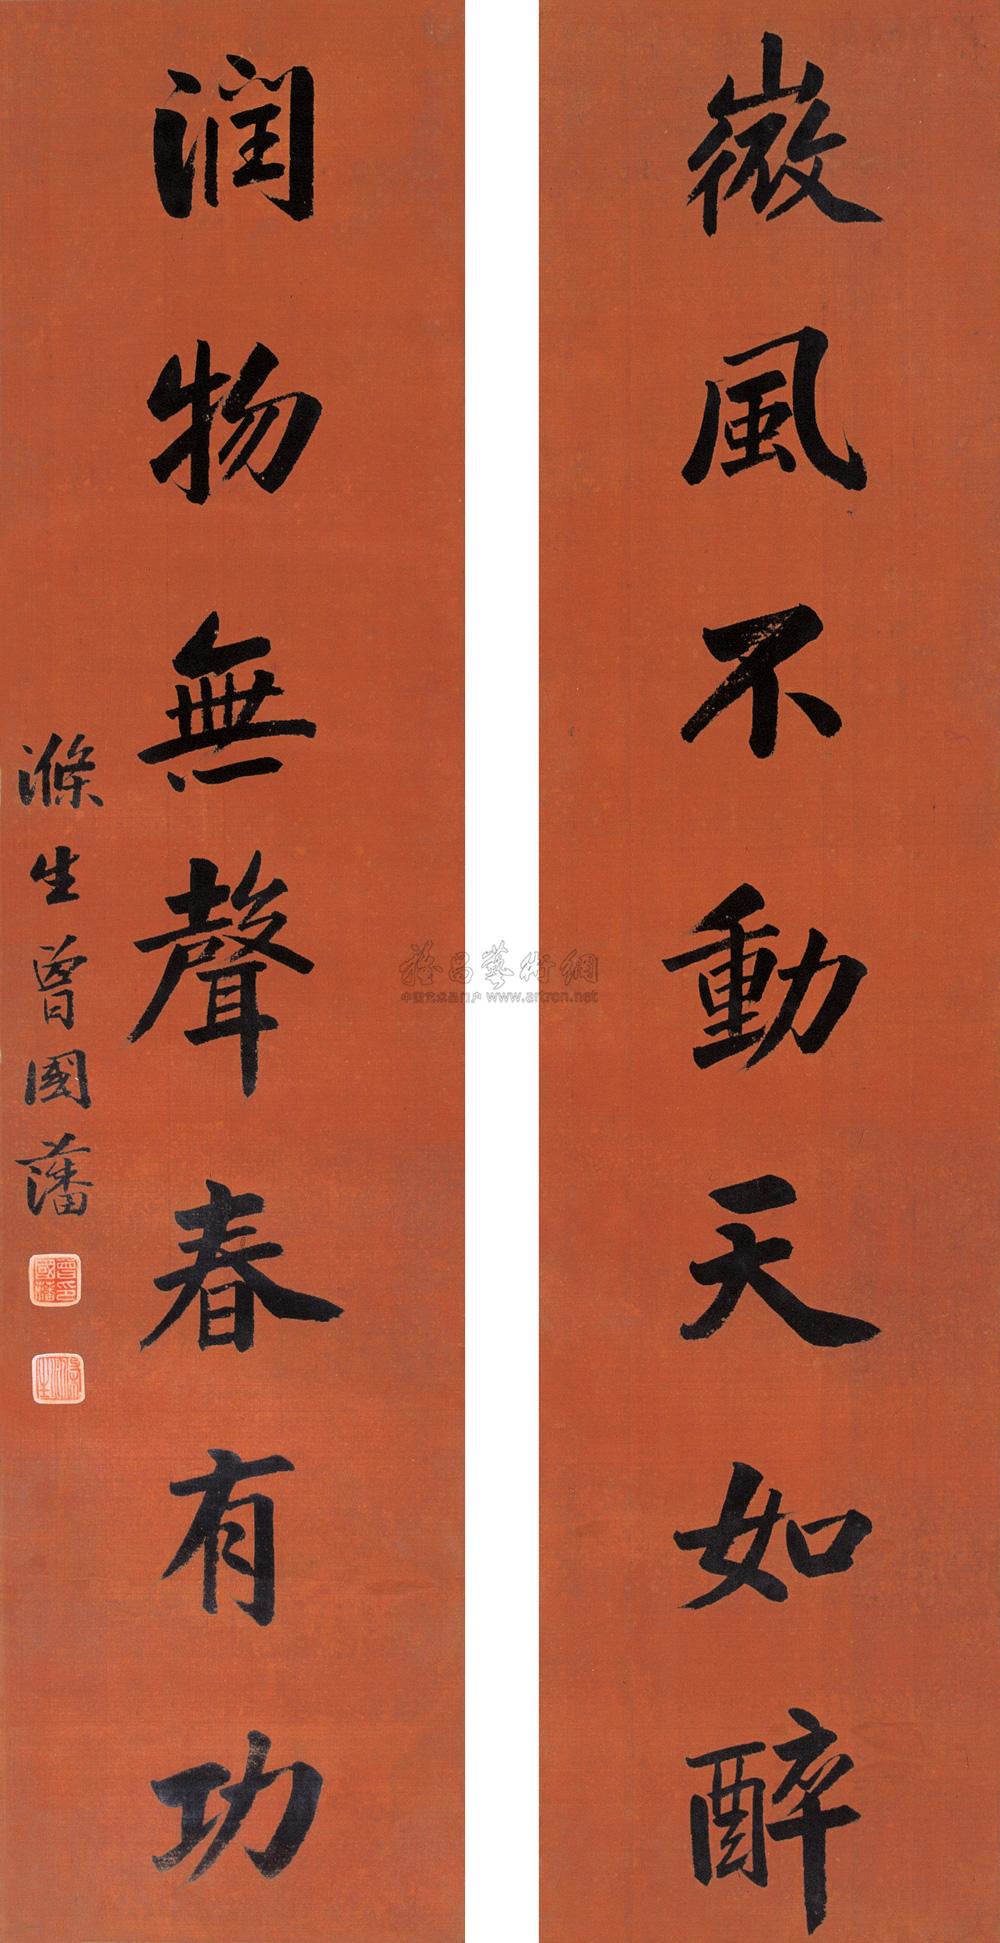 微風不動天如醉
潤物無聲春有功
滌生曾國藩
曾國藩印
滌生
雅昌藝術網
中国艺术品门户 www.artron.net